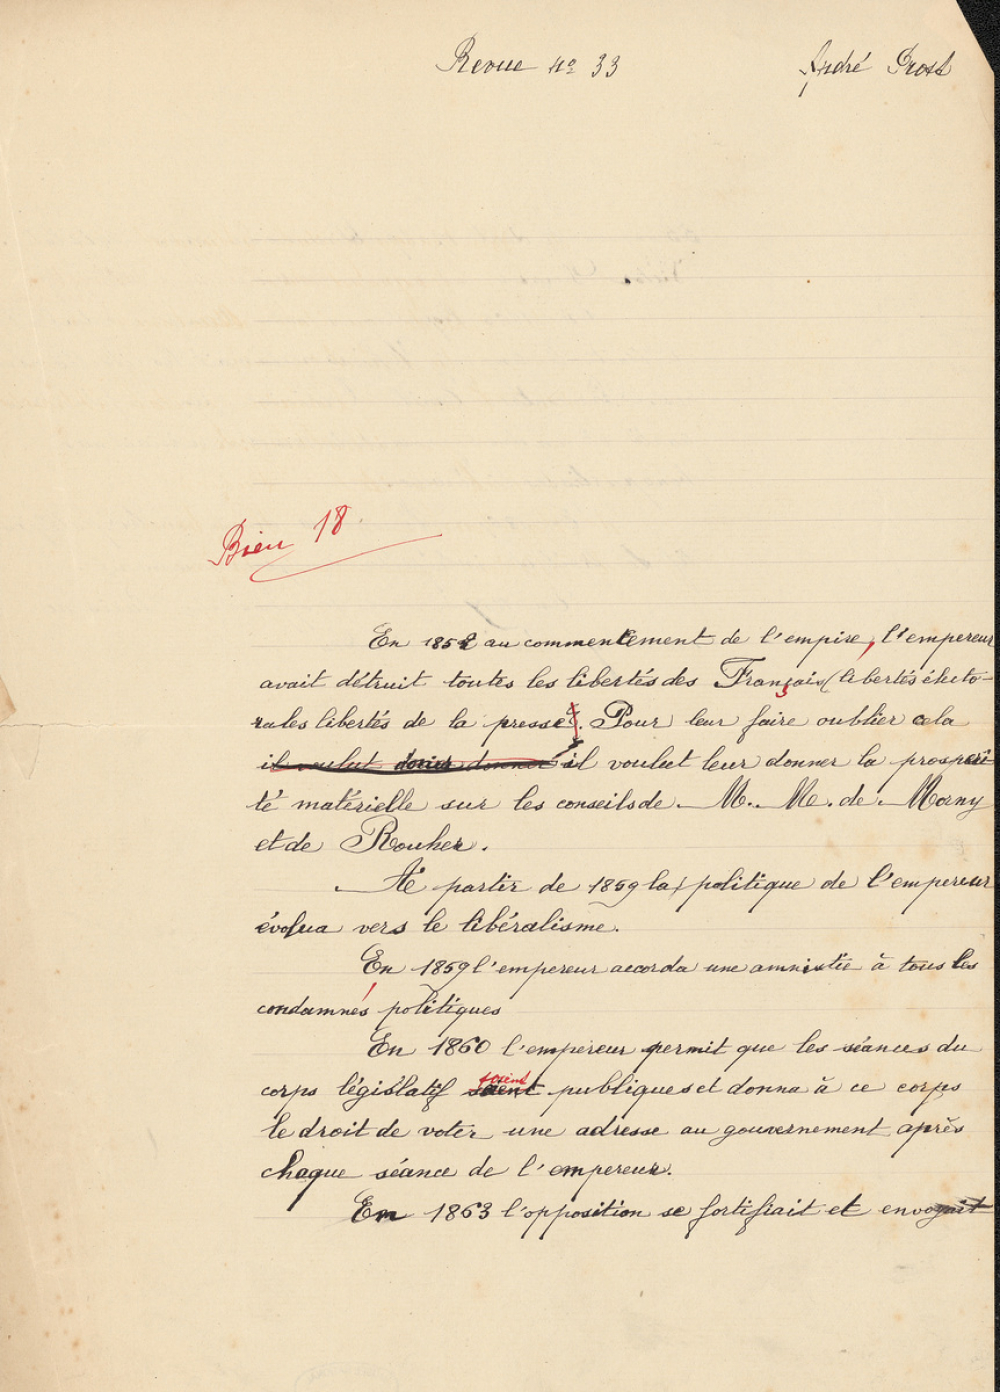 Revue nº 33
André Prost
Bien 18
En 1852 au commentement de l'empire, l'empereur
avait détruit toutes les libertés des Français (libertés électo-
rales libertés de la presse). Pour leur faire oublier cela
il voulut donner il voulut leur donner la prospéri-
té matérielle sur les conseils de M. M. de Morny
et de Rouher.
A partir de 1859 la politique de l'empereur
évolua vers le libéralisme.
En 1859 l'empereur accorda une amnistie à tous les
condamnés politiques
En 1860 l'empereur permit que les séances du
corps législatif soient publiques et donna à ce corps
le droit de voter une adresse au gouvernement après
chaque séance de l'empereur.
En 1863 l'opposition se fortifiait et envoyait